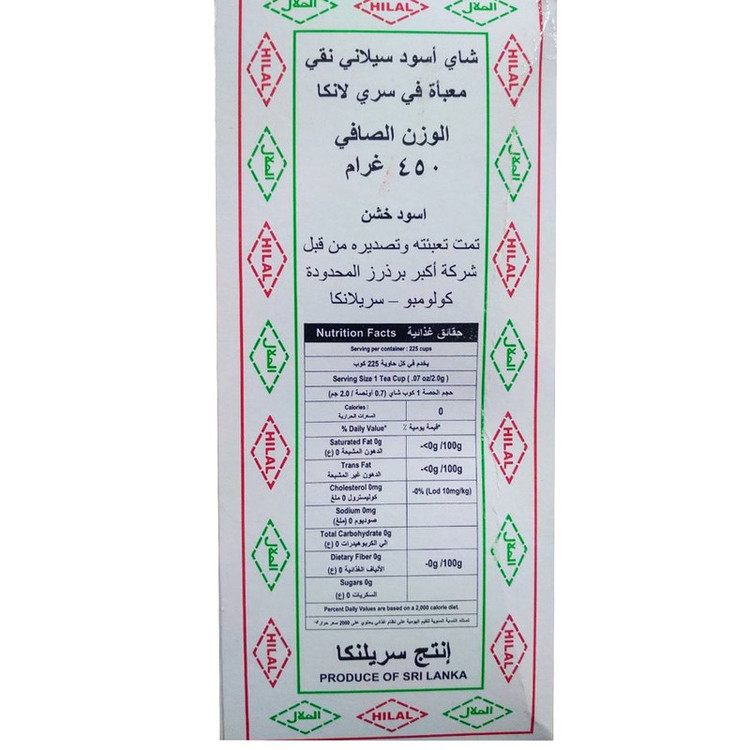 الهلال HILAL الهلال
شاي أسود سيلاني نقي
معبأة في سري لانكا
الوزن الصافي
٤٥٠ غرام
اسود خشن
تمت تعبئته وتصديره من قبل
شركة أكبر برذرز المحدودة
كولومبو – سريلانكا
Nutrition Facts حقائق غذائية
Serving per container : 225 cups
يخدم في كل حاوية 225 كوب
Serving Size 1 Tea Cup ( .07 oz/2.0g )
حجم الحصة 1 كوب شاي (0.7 أونصة / 2.0 جم)
Calories : 0
السعرات الحرارية
% Daily Value* قيمة يومية ٪*
Saturated Fat 0g -<0g /100g
الدهون المشبعة 0 (غ)
Trans Fat -<0g /100g
الدهون غير المشبعة
Cholesterol 0mg -0% (Lod 10mg/kg)
كوليسترول 0 ملغ
Sodium 0mg
صوديوم 0 (ملغ)
Total Carbohydrate 0g
الي الكربوهيدرات 0 (غ)
Dietary Fiber 0g -0g /100g
الألياف الغذائية 0 (غ)
Sugars 0g
السكريات 0 (غ)
Percent Daily Values are based on a 2,000 calorie diet.
تستند النسبة المئوية للقيم اليومية على نظام غذائي يحتوي على 2000 سعر
إنتج سريلنكا
PRODUCE OF SRI LANKA
HILAL HILAL
الهلال الهلال
HILAL HILAL
الهلال الهلال
HILAL HILAL
الهلال الهلال
HILAL HILAL
الهلال HILAL الهلال